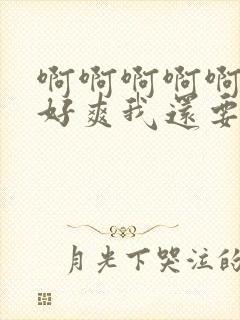 啊啊啊啊啊
好爽我還要
月光下哭泣的